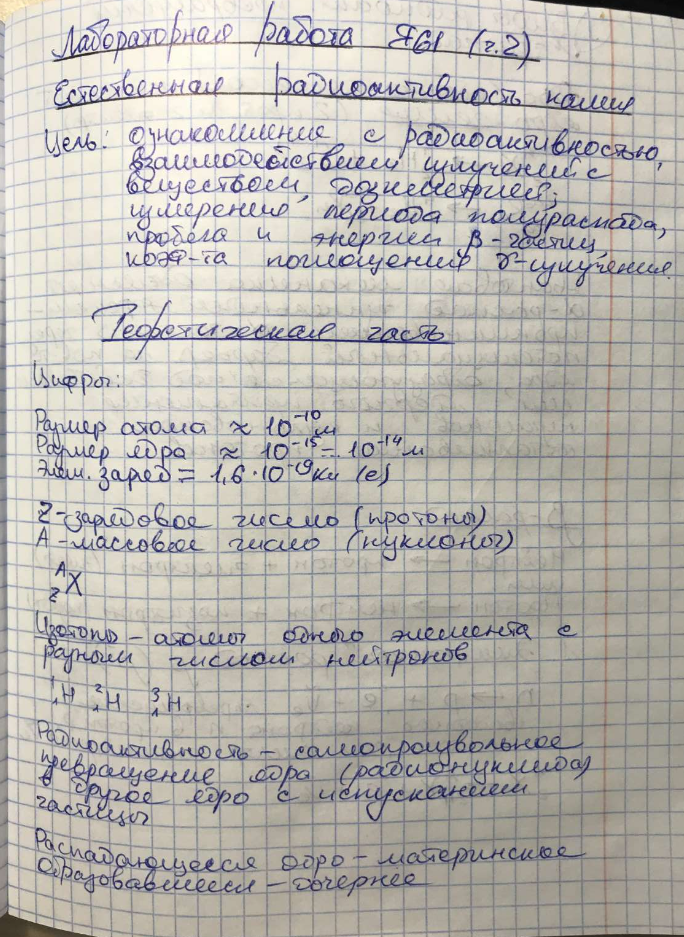 Лабораторная работа Я61 (ч.2)
Естественная радиоактивность калия
Цель: ознакомление с радиоактивностью,
взаимодействием излучений с
веществом, дозиметрией;
измерения периода полураспада,
пробега и энергии β-частиц,
коэф-та поглощения γ-излучения.
Теоретическая часть
Цифры:
Размер атома ≈ 10⁻¹⁰ м
Размер ядра ≈ 10⁻¹⁵ – 10⁻¹⁴ м
Элем. заряд = 1,6·10⁻¹⁹ Кл (e)
Z – зарядовое число (протоны)
A – массовое число (нуклоны)
ᴬ_Z X
Изотопы – атомы одного элемента с
разным числом нейтронов
¹₁H ²₁H ³₁H
Радиоактивность – самопроизвольное
превращение ядра (радионуклида)
в другое ядро с испусканием
частицы
Распадающееся ядро – материнское
Образовавшееся – дочернее